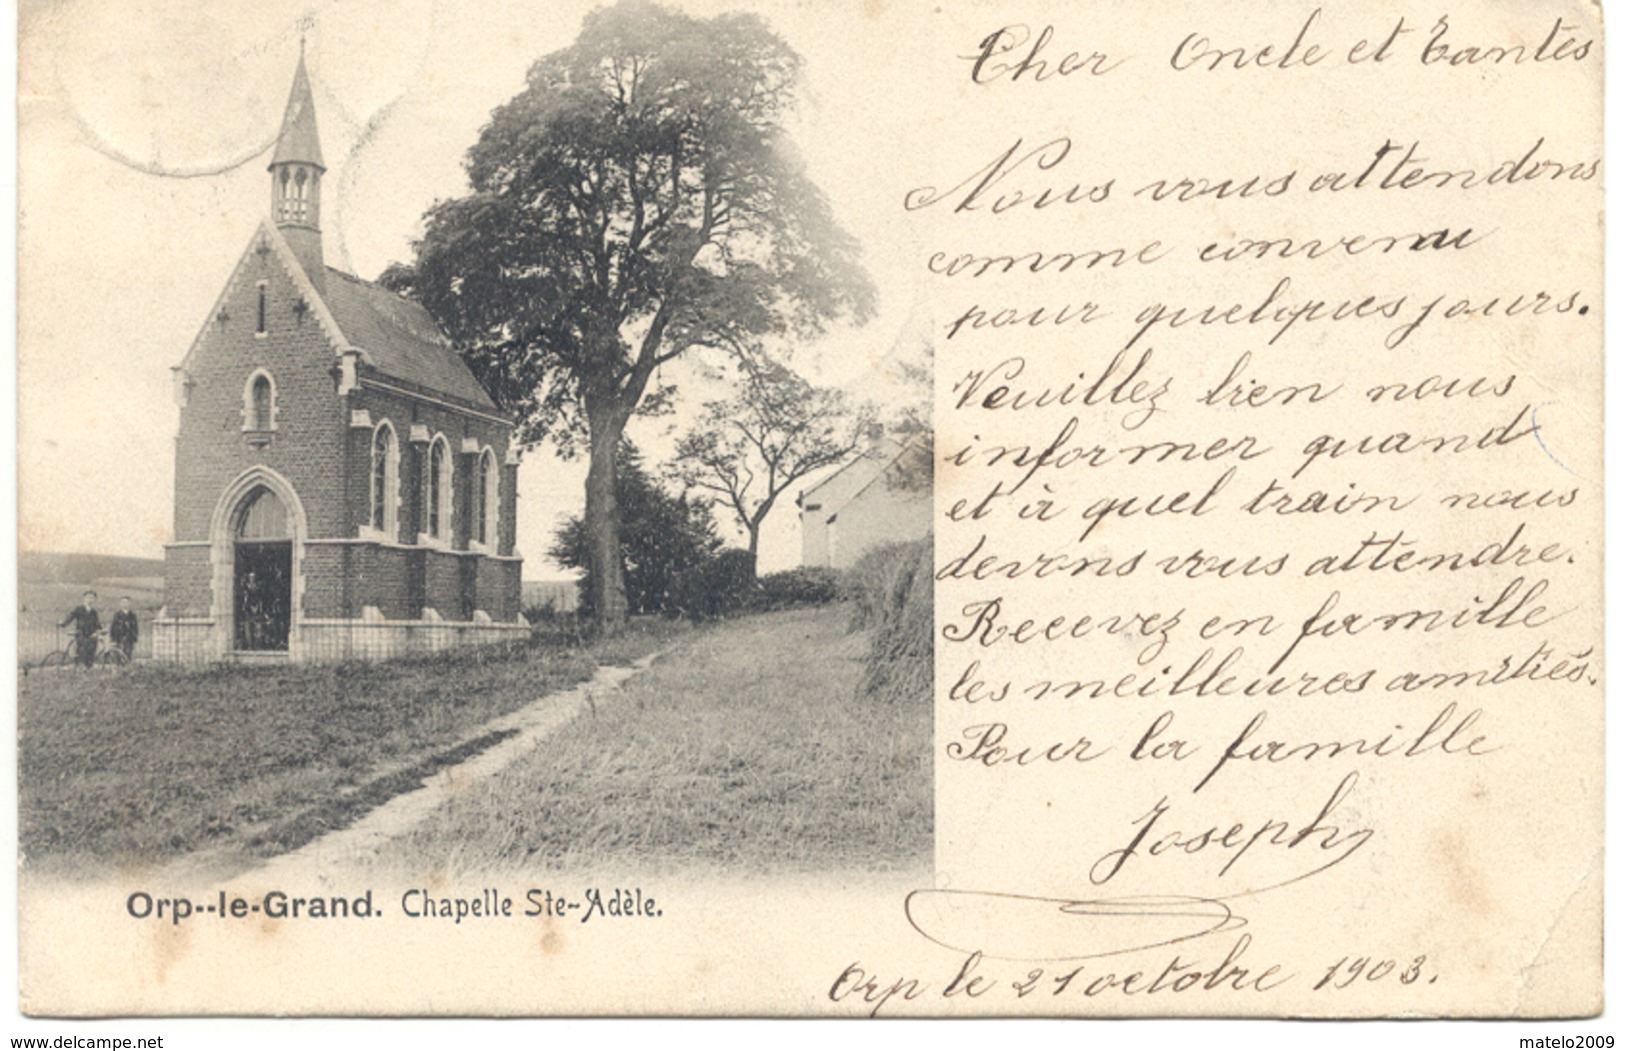 Cher Oncle et Tantes
Nous vous attendons
comme convenu
pour quelques jours.
Veuillez bien nous
informer quand
et à quel train nous
devons vous attendre.
Recevez en famille
les meilleures amitiés.
Pour la famille
Joseph
Orp--le-Grand. Chapelle Ste-Adèle.
Orp le 21 octobre 1903.
www.delcampe.net
matelo2009